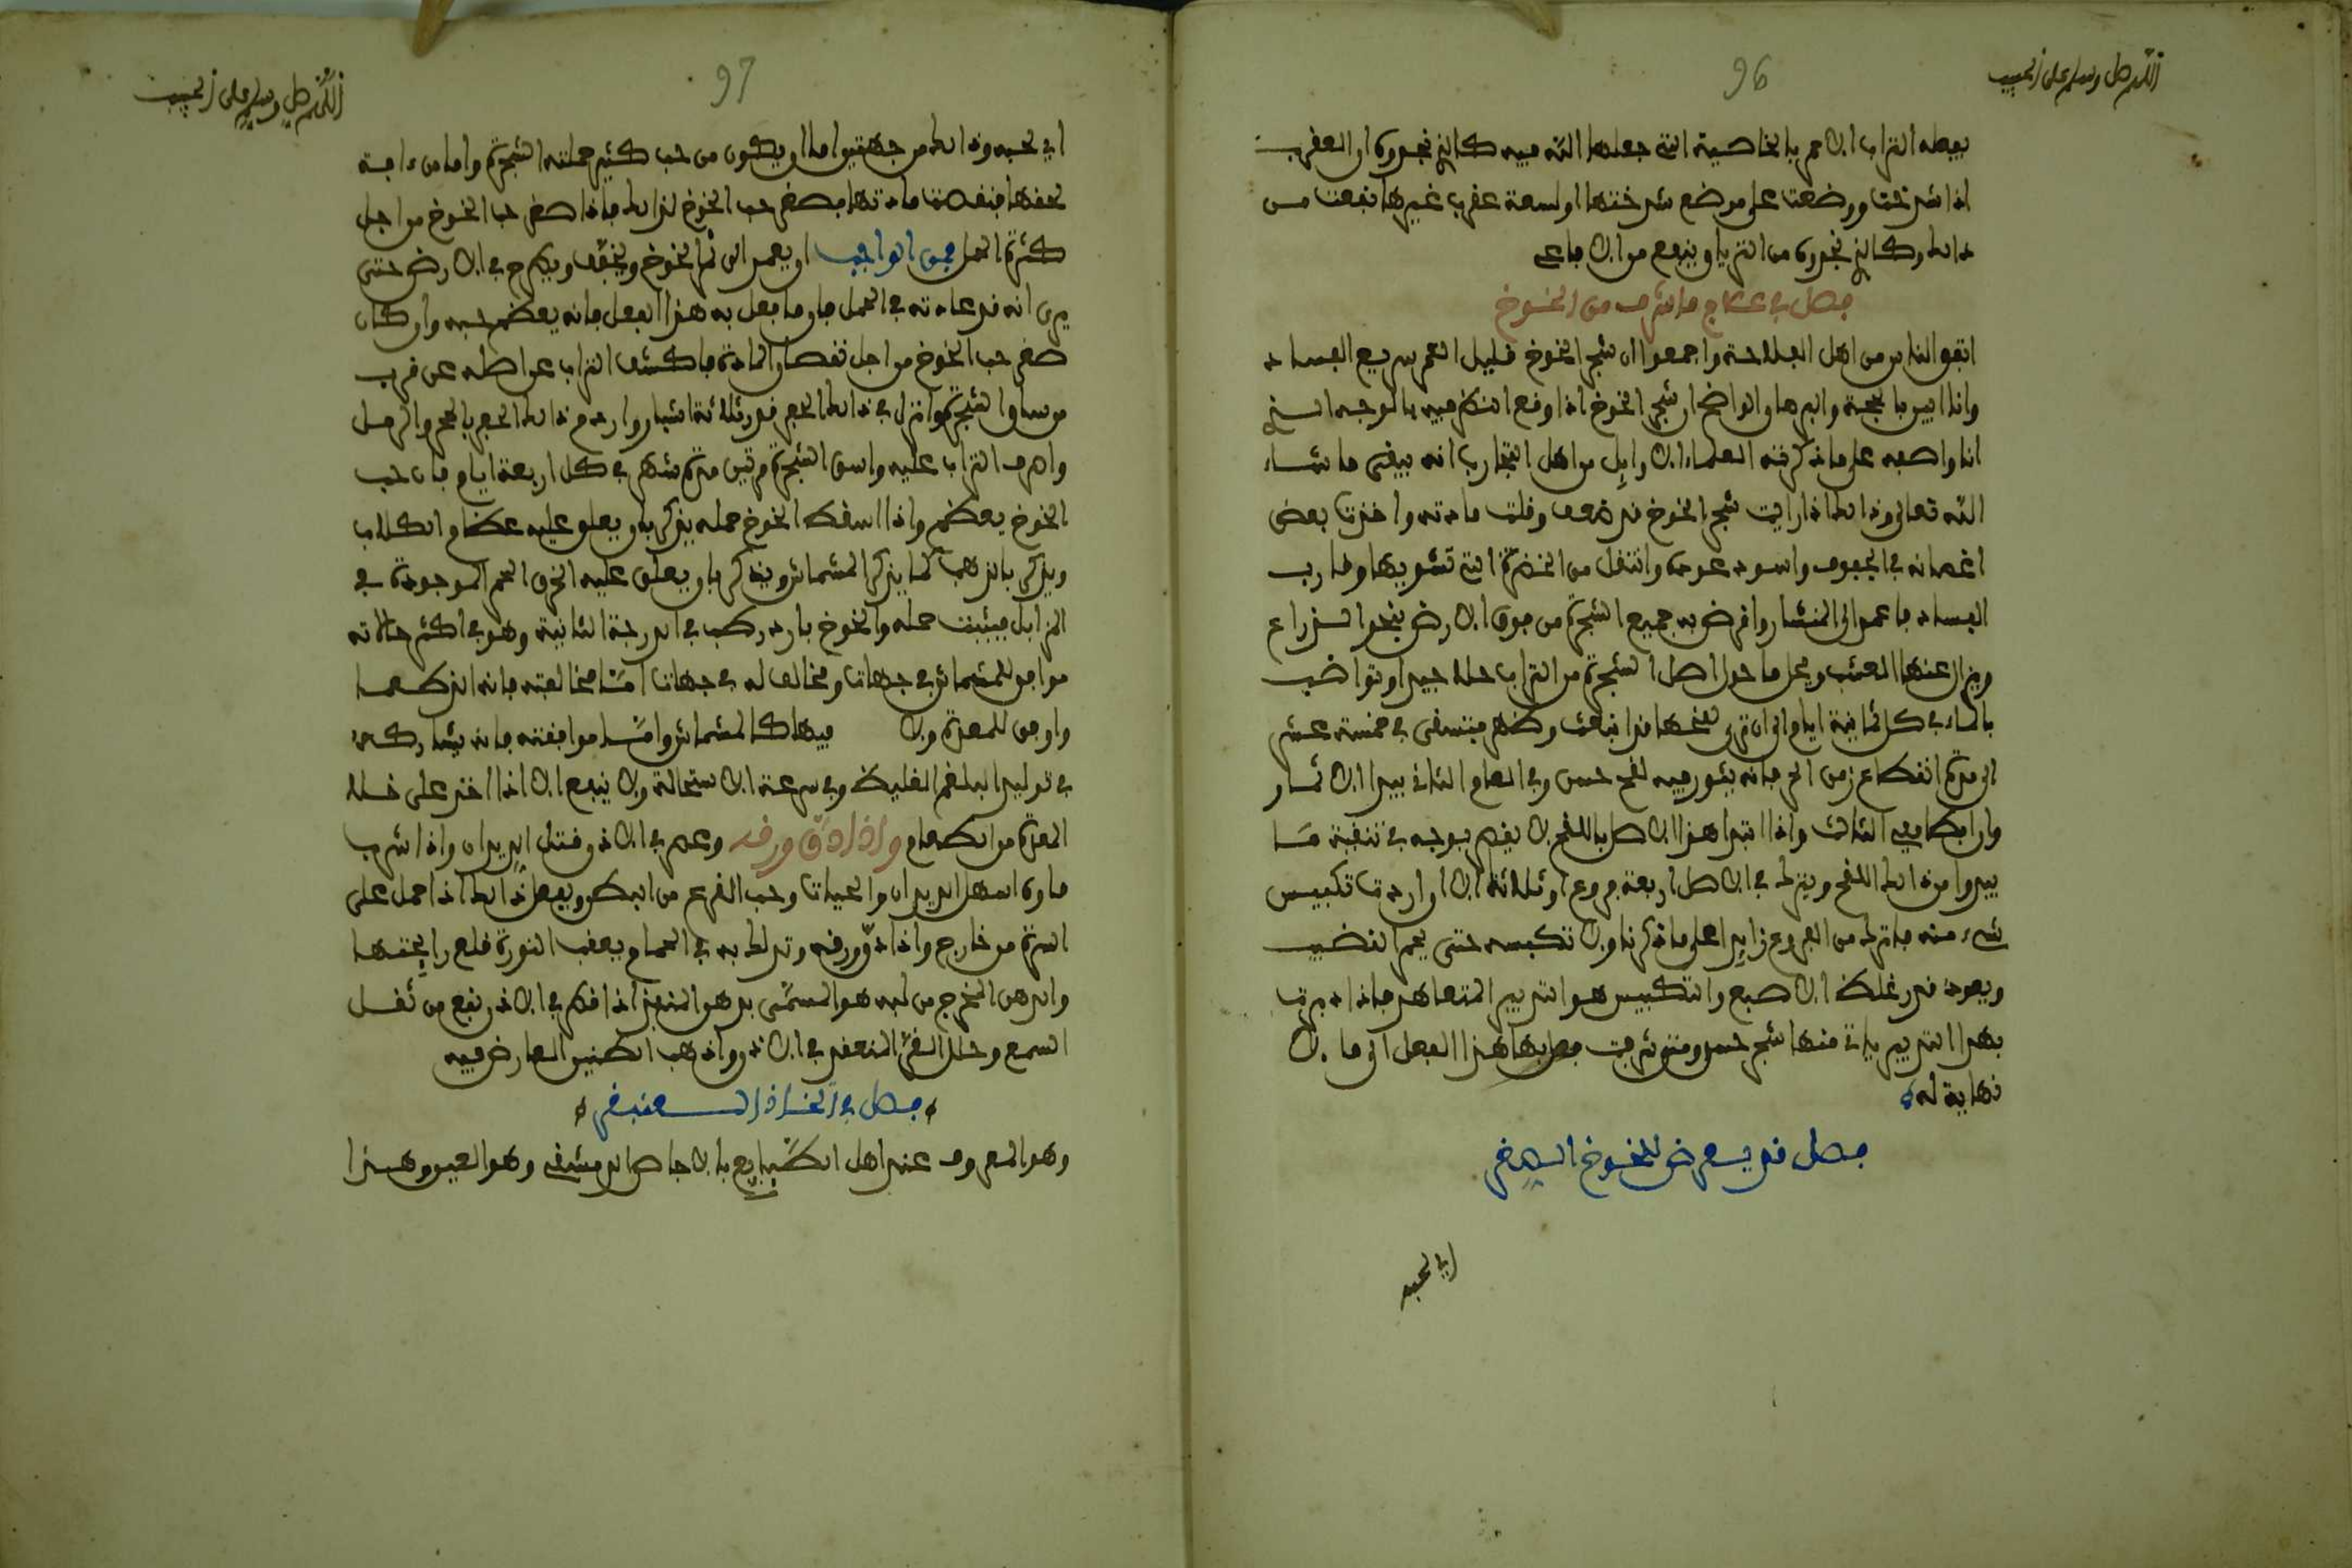 اللهم صل وسلم على الحبيب
96
يفعله التراب الاحمر بالخاصية التي جعلها الله فيه كالزنجفورة او العقرب
اذا شدخت ووضعت على موضع شدختها او لسعة عقرب غيرها نفعت من
ذالك وكالزنجفورة من الترياق ينفع من الافاعى
فصل في علاج ما شرف من الخوخ
اتفق الناس من اهل الفلاحة واجمعوا ان شجر الخوخ قليل العمر سريع الفساد
وانا ابين بالحجة والبرهان الواضح ان شجر الخوخ اذا وقع النظر فيه بالوجه الذي
انا واصفه على ما ذكرته العلماء الاوايل من اهل التجارب انه يبقى ما شاء
الله تعالى وذالك اذا رايت شجر الخوخ قد ضعف وقلت مادته واخذت بعض
اغصانه في الجفوف واسود عوده وانتقل من الخضرة التي تشوبها وقارب
الفساد فاعمد الى المنشار واقرض به جميع الشجرة من فوق الارض بنحو الذراع
ويزال عنها العشب ويحل ما حول اصل الشجرة من التراب حلا جيدا وتواضب
بالماء في كل ثمانية ايام الى ان ترى لقحها قد انبعث وظهر فتسقى في خمسة عشر
الى مدة انقطاع زمن الحر فانه يثور فيه لقح حسن وفي العام الثاني يبدا الاثمار
وان ابطا ففي الثالث واذا ابتدا هذا الاصل باللقح لا يفرط بوجه في تنقية مسا
يبدوا من ذالك اللقح ويترك في الاصل اربعة فروع او ثلاثة الا ان اردت تكبيس
شيء منه فاترك من الفروع زايدا على ما ذكرنا ولا تكبسه حتى يعم القضيب
ويعود قدر غلظ الاصبع والتكبيس هو التدبير المتعاهد فاذا دبرت
بهذا التدبير ياتي منها شجر حسن ومتى شرفت فعل بها هذا الفعل الى ما لا
نهاية له
فصل قد يعرض للخوخ الصغر
اي لحبه
اللهم صل وسلم على الحبيب
97
اي لحبه وذالك من جهتين اما ان يكون من حب كثير حملته الشجرة واما من ءافة
لحقها فنقصت مادتها فصغر حب الخوخ لذالك فاذا صغر حب الخوخ من اجل
كثرة الحمل فمن الواجب ان يعمد الى ثمر الخوخ ويخفف ويطرح في الارض حتى
يرى انه قد عادته في الحمل فان ما فعل به هذا الفعل فانه يعظم حبه وان كان
صغر حب الخوخ من اجل نقصان المادة فاكشف التراب عن اصله عن قرب
من ساق الشجرة وانزل في ذالك الحفر قدر ثلاثة اشبار واردم ذالك الحفر بالحجر والرمل
واصرف التراب عليه واسق الشجرة مرتين مدة شهر في كل اربعة ايام فان حب
الخوخ يعظم واذا اسقط الخوخ حمله يذكر بان يعلق عليه عظام الكلاب
ويذكر بالذهب كما يذكر المشماش ويذكر بان يعلق عليه الخرق الحمر الموجودة في
المزابل فيثبت حمله والخوخ بارد رطب في الدرجة الثانية وهو في اكثر حالاته
موافق للمشماش في جهات ومخالف له في جهات امّا مخالفته فانه الذ طعما
واوفق للمعدة ولا فيها كالمشماش وامّا موافقته فانه يشاركه
في توليد البلغم الغليظ وفي سرعة الاستحالة ولا ينفع الا اذا اخذ على خلا
المعدة من الطعام واذا دق ورقه وعصر في الاذن قتل الديدان واذا شرب
ماوه اسهل الديدان والحيات وحب القرع من البطن ويفعل ذالك اذا حمل على
السرة من خارج واذا دق ورقه وتدلك به في الحمام بعقب النورة قلع رايحتها
والدهن المخرج من لبه هو المسمّى بدهو المنعفر اذا قطر في الاذن نفع من ثقل
السمع وحلل القيح المنعقد في الاذن واذهب الطنين العارض فيه
فصل في اتخاذ السعنبقر
وهو المعروف عند اهل الطبايع بالاجاص الدمشقي وهو العيون وهذا